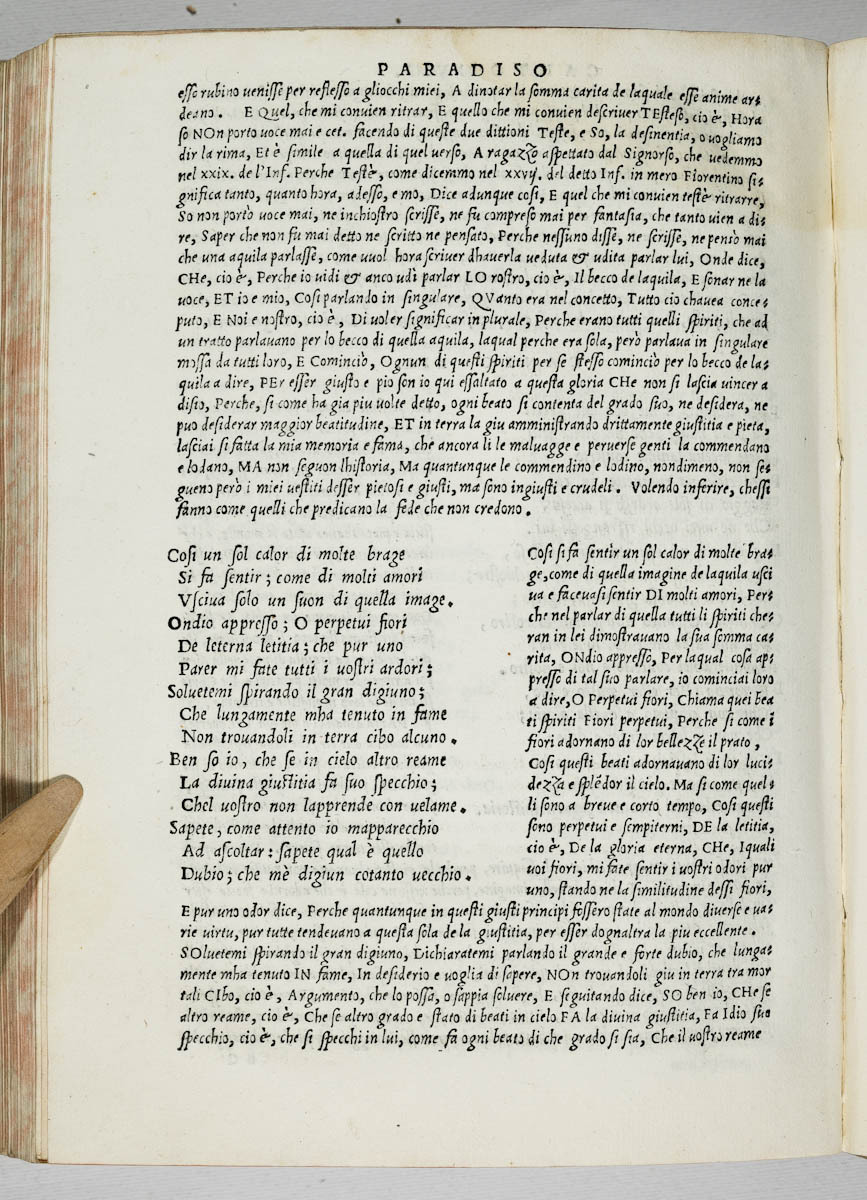 PARADISO
esso rubino uenisse per reflesso a gliocchi miei, A dinotar la somma carita de laquale esse anime ar-
deano. E Quel, che mi conuien ritrar, E quello che mi conuien descriuer TEsteso, cio è, Hora
so NOn porto uoce mai e cet. facendo di queste due dittioni Teste, e So, la desinentia, o uogliamo
dir la rima, Et è simile a quella di quel uerso, A ragazzo aspettato dal Signorso, che uedemmo
nel xxix. de l'Inf. Perche Testè, come dicemmo nel xxvij. del detto Inf. in mero Fiorentino si-
gnifica tanto, quanto hora, adesso, e mo, Dice adunque cosi, E quel che mi conuien testè ritrarre,
So non portò uoce mai, ne inchiostro scrisse, ne fu compreso mai per fantasia, che tanto uien a di-
re, Saper che non fu mai detto ne scritto ne pensato, Perche nessuno disse, ne scrisse, ne pensò mai
che una aquila parlasse, come uuol hora scriuer dhauerla ueduta & udita parlar lui, Onde dice,
CHe, cio è, Perche io uidi & anco udi parlar LO rostro, cio è, Il becco de laquila, E sonar ne la
uoce, ET io e mio, Cosi parlando in singulare, QVanto era nel concetto, Tutto cio chauea conce-
puto, E Noi e nostro, cio è, Di uoler significar in plurale, Perche erano tutti quelli spiriti, che ad
un tratto parlauano per lo becco di quella aquila, laqual perche era sola, però parlaua in singulare
mossa da tutti loro, E Cominciò, Ognun di questi spiriti per se stesso cominciò per lo becco de la-
quila a dire, PEr esser giusto e pio son io qui essaltato a questa gloria CHe non si lascia uincer a
disio, Perche, si come ha gia piu uolte detto, ogni beato si contenta del grado suo, ne desidera, ne
puo desiderar maggior beatitudine, ET in terra la giu amministrando drittamente giustitia e pieta,
lasciai si fatta la mia memoria e fama, che ancora li le maluagge e peruerse genti la commendano
e lodano, MA non seguon lhistoria, Ma quantunque le commendino e lodino, nondimeno, non se-
gueno però i miei uestiti desser pietosi e giusti, ma sono ingiusti e crudeli. Volendo inferire, chessi
fanno come quelli che predicano la fede che non credono.
Cosi un sol calor di molte brage
Si fa sentir; come di molti amori
Vsciua solo un suon di quella image.
Ondio appresso; O perpetui fiori
De leterna letitia; che pur uno
Parer mi fate tutti i uostri ardori;
Soluetemi spirando il gran digiuno;
Che lungamente mha tenuto in fame
Non trouandoli in terra cibo alcuno.
Ben so io, che se in cielo altro reame
La diuina giustitia fa suo specchio;
Chel uostro non lapprende con uelame.
Sapete, come attento io mapparecchio
Ad ascoltar: sapete qual è quello
Dubio; che mè digiun cotanto uecchio.
Cosi si fa sentir un sol calor di molte bra-
ge, come di quella imagine de laquila usci
ua e faceuasi sentir DI molti amori, Per-
che nel parlar di quella tutti li spiriti che-
ran in lei dimostrauano la sua somma ca-
rita, ONdio appresso, Per laqual cosa ap-
presso di tal suo parlare, io cominciai loro
a dire, O Perpetui fiori, Chiama quei bea
ti spiriti Fiori perpetui, Perche si come i
fiori adornano di lor bellezze il prato,
Cosi questi beati adornauano di lor luci-
dezza e splēdor il cielo. Ma si come quel-
li sono a breue e corto tempo, Cosi questi
sono perpetui e sempiterni, DE la letitia,
cio è, De la gloria eterna, CHe, Iquali
uoi fiori, mi fate sentir i uostri odori pur
uno, stando ne la similitudine dessi fiori,
E pur uno odor dice, Perche quantunque in questi giusti principi fessero state al mondo diuerse e ua-
rie uirtu, pur tutte tendeuano a questa sola de la giustitia, per esser dognaltra la piu eccellente.
SOluetemi spirando il gran digiuno, Dichiaratemi parlando il grande e forte dubio, che lunga-
mente mha tenuto IN fame, In desiderio e uoglia di sapere, NOn trouandoli giu in terra tra mor
tali CIbo, cio è, Argumento, che lo possa, o sappia soluere, E seguitando dice, SO ben io, CHe se
altro reame, cio è, Che se altro grado e stato di beati in cielo FA la diuina giustitia, Fa Idio suo
specchio, cio è, che si specchi in lui, come fa ogni beato di che grado si sia, Che il uostro reame